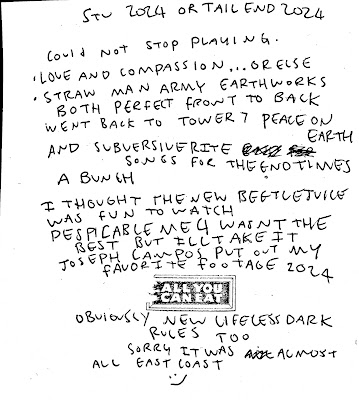 STU 2024 OR TAIL END 2024
COULD NOT STOP PLAYING.
• LOVE AND COMPASSION... OR ELSE
• STRAW MAN ARMY EARTHWORKS
BOTH PERFECT FRONT TO BACK
WENT BACK TO TOWER 7 PEACE ON
EARTH
AND SUBVERSIVE RITE
SONGS FOR THE ENDTIMES
A BUNCH
I THOUGHT THE NEW BEETLEJUICE
WAS FUN TO WATCH
DESPICABLE ME 4 WASNT THE
BEST BUT ILL TAKE IT
JOSEPH CAMPOS PUT OUT MY
FAVORITE FOOTAGE 2024
ALL YOU
CAN EAT
OBVIOUSLY NEW LIFELESS DARK
RULES TOO
SORRY IT WAS ALMOST
ALL EAST COAST